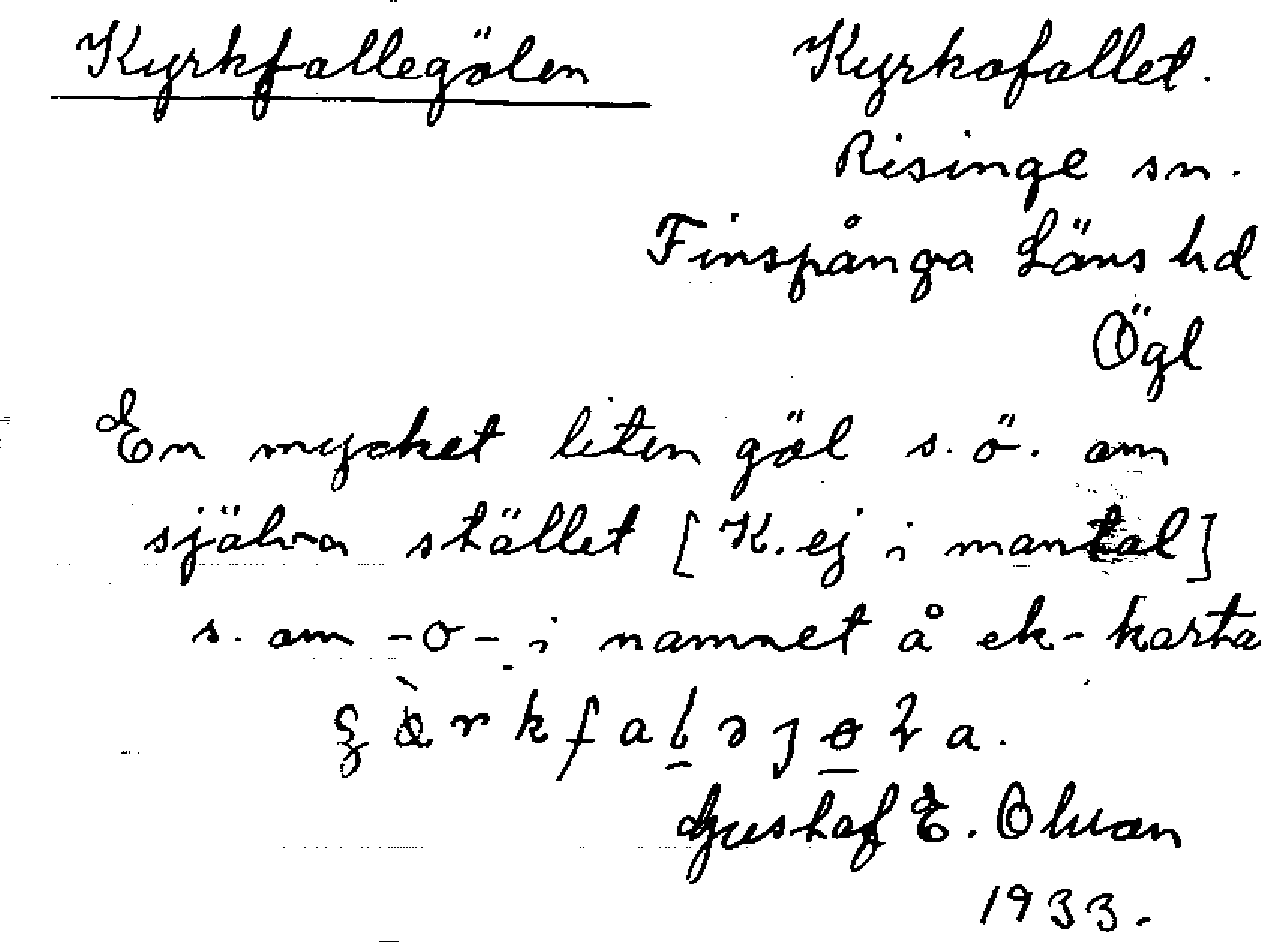 Kyrkfallegölen Kyrkofallet.
Risinge sn.
Finspånga Läns hd
Ögl
En mycket liten göl s.ö. om
själva stället [K. ej i mantal]
s. om -o- i namnet å ek-karta
Gustaf E. Olson
1933.